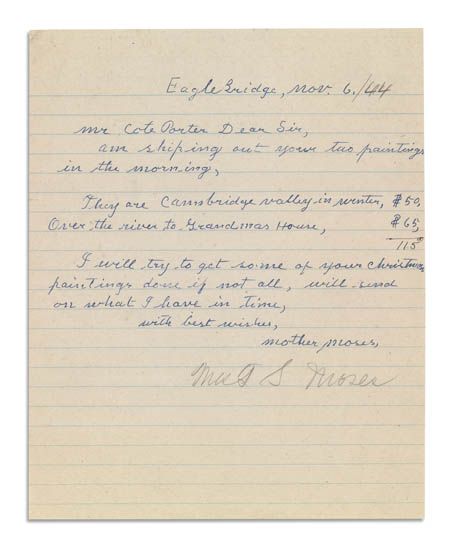 Eagle Bridge, Nov. 6./44
Mr Cole Porter Dear Sir,
am shiping out your two paintings
in the morning,
They are Cambridge valley in winter, $50,
Over the river to Grandmas House, $65,
115
I will try to get some of your Christmas
paintings done if not all, will send
on what I have in time,
with best wishes,
mother moses,
Moses